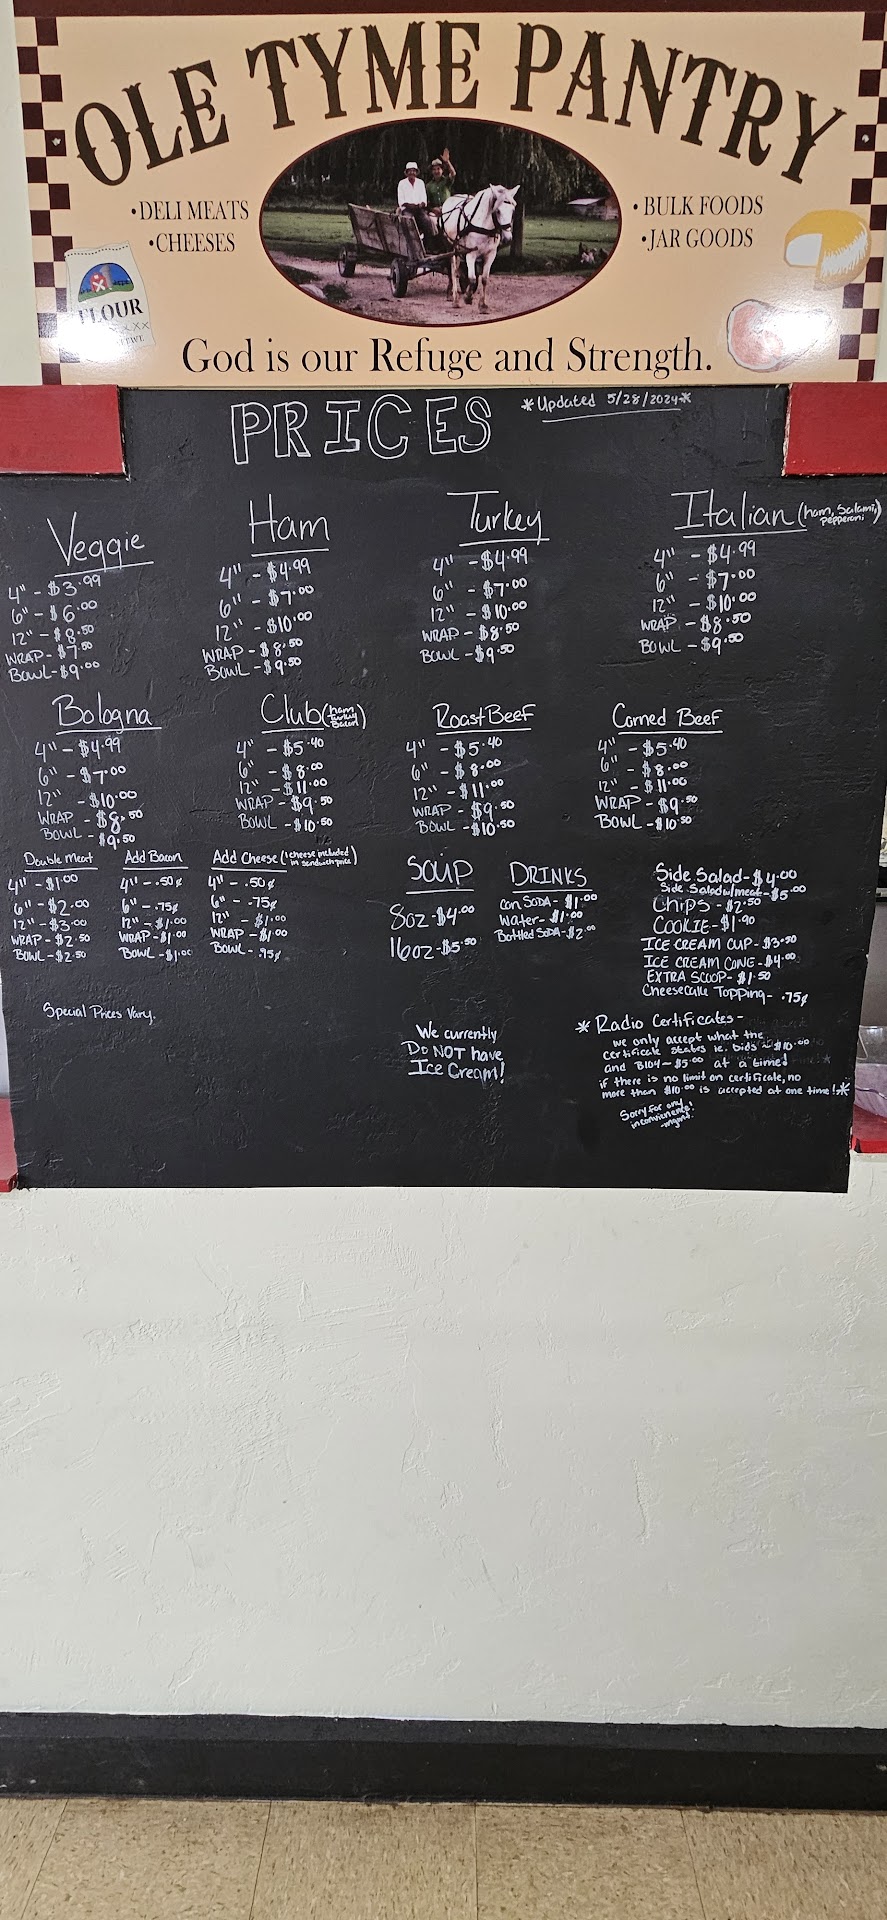 OLE TYME PANTRY
•DELI MEATS
•CHEESES
•BULK FOODS
•JAR GOODS
FLOUR
God is our Refuge and Strength.
PRICES
*Updated 5/28/2024*
Veggie
4" - $3.99
6" - $6.00
12" - $8.50
WRAP - $7.50
BOWL - $9.00
Ham
4" - $4.99
6" - $7.00
12" - $10.00
WRAP - $8.50
BOWL - $9.50
Turkey
4" - $4.99
6" - $7.00
12" - $10.00
WRAP - $8.50
BOWL - $9.50
Italian (ham, Salami, pepperoni)
4" - $4.99
6" - $7.00
12" - $10.00
WRAP - $8.50
BOWL - $9.50
Bologna
4" - $4.99
6" - $7.00
12" - $10.00
WRAP - $8.50
BOWL - $9.50
Club (ham Turkey Bacon)
4" - $5.40
6" - $8.00
12" - $11.00
WRAP - $9.50
BOWL - $10.50
Roast Beef
4" - $5.40
6" - $8.00
12" - $11.00
WRAP - $9.50
BOWL - $10.50
Corned Beef
4" - $5.40
6" - $8.00
12" - $11.00
WRAP - $9.50
BOWL - $10.50
Double Meat
4" - $1.00
6" - $2.00
12" - $3.00
WRAP - $2.50
BOWL - $2.50
Add Bacon
4" - .50¢
6" - .75¢
12" - $1.00
WRAP - $1.00
BOWL - $1.00
Add Cheese (1 cheese included in sandwich price)
4" - .50¢
6" - .75¢
12" - $1.00
WRAP - $1.00
BOWL - .75¢
SOUP
8oz - $4.00
16oz - $5.50
DRINKS
Can SODA - $1.00
Water - $1.00
Bottled SODA - $2.00
Side Salad - $4.00
Side Salad w/meat - $5.00
Chips - $2.50
COOKIE - $1.90
ICE CREAM CUP - $3.50
ICE CREAM CONE - $4.00
EXTRA SCOOP - $1.50
Cheesecake Topping - .75¢
Special Prices Vary.
We currently
Do NOT have
Ice Cream!
* Radio Certificates -
we only accept what the
certificate states ie. bids - $10.00
and BID4 - $5.00 at a time!
if there is no limit on certificate, no
more than $10.00 is accepted at one time! *
Sorry for any
inconvenience!
-mgmt.